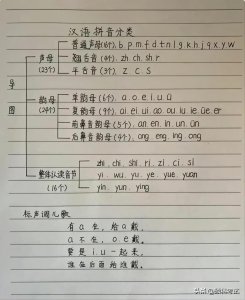 汉语拼音分类
导图
声母(23个)
普通声母(16个). b p m f d t n l g k h j q x y w
翘舌音(4个). zh ch sh r
平舌音(3个). z c s
韵母(24个)
单韵母(6个). a o e i u ü
复韵母(9个). ai ei ui ao ou iu ie üe er
前鼻音韵母(5个). an en in un ün
后鼻音韵母(4个). ang eng ing ong
整体认读音节(16个)
zhi, chi, shi, ri, zi, ci, si
yi, wu, yu, ye, yue, yuan
yin, yun, ying
标声调儿歌
有a在, 给a戴,
a不在, o e戴,
要是iu一起来,
谁在后面给谁戴。